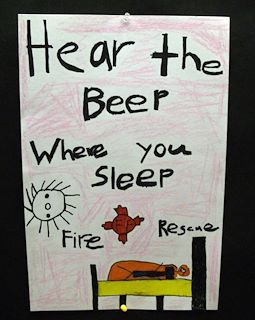 Hear the
Beep
Where you
Sleep
Fire Rescue